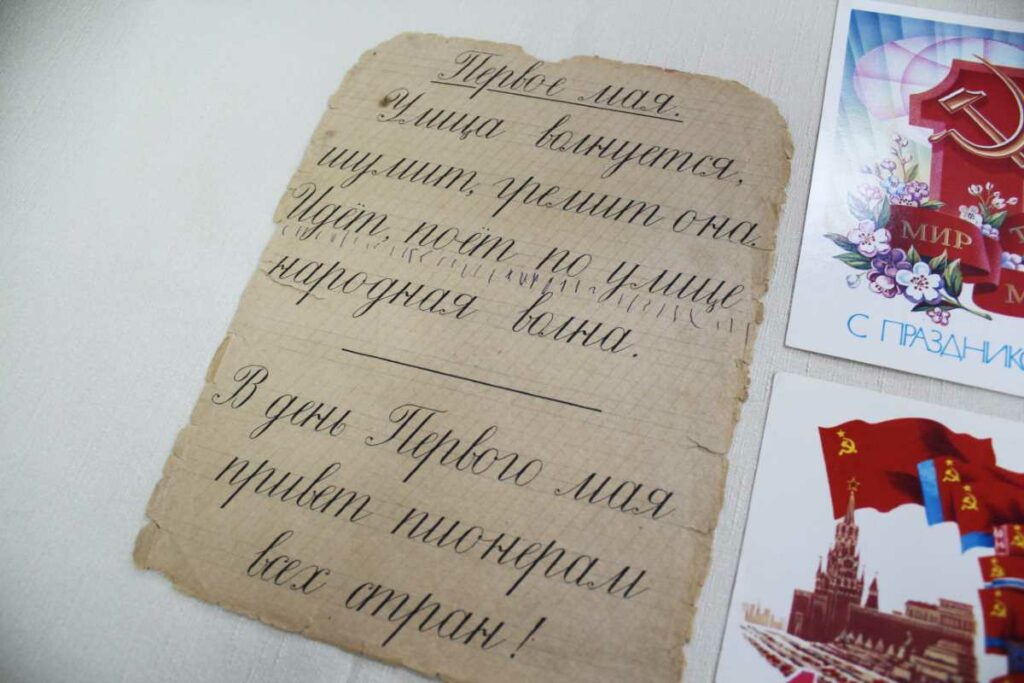 Первое мая.
Улица волнуется,
шумит, гремит она.
Идёт, поёт по улице
народная волна.
В день Первого мая
привет пионерам
всех стран!
МИР
С ПРАЗДНИК